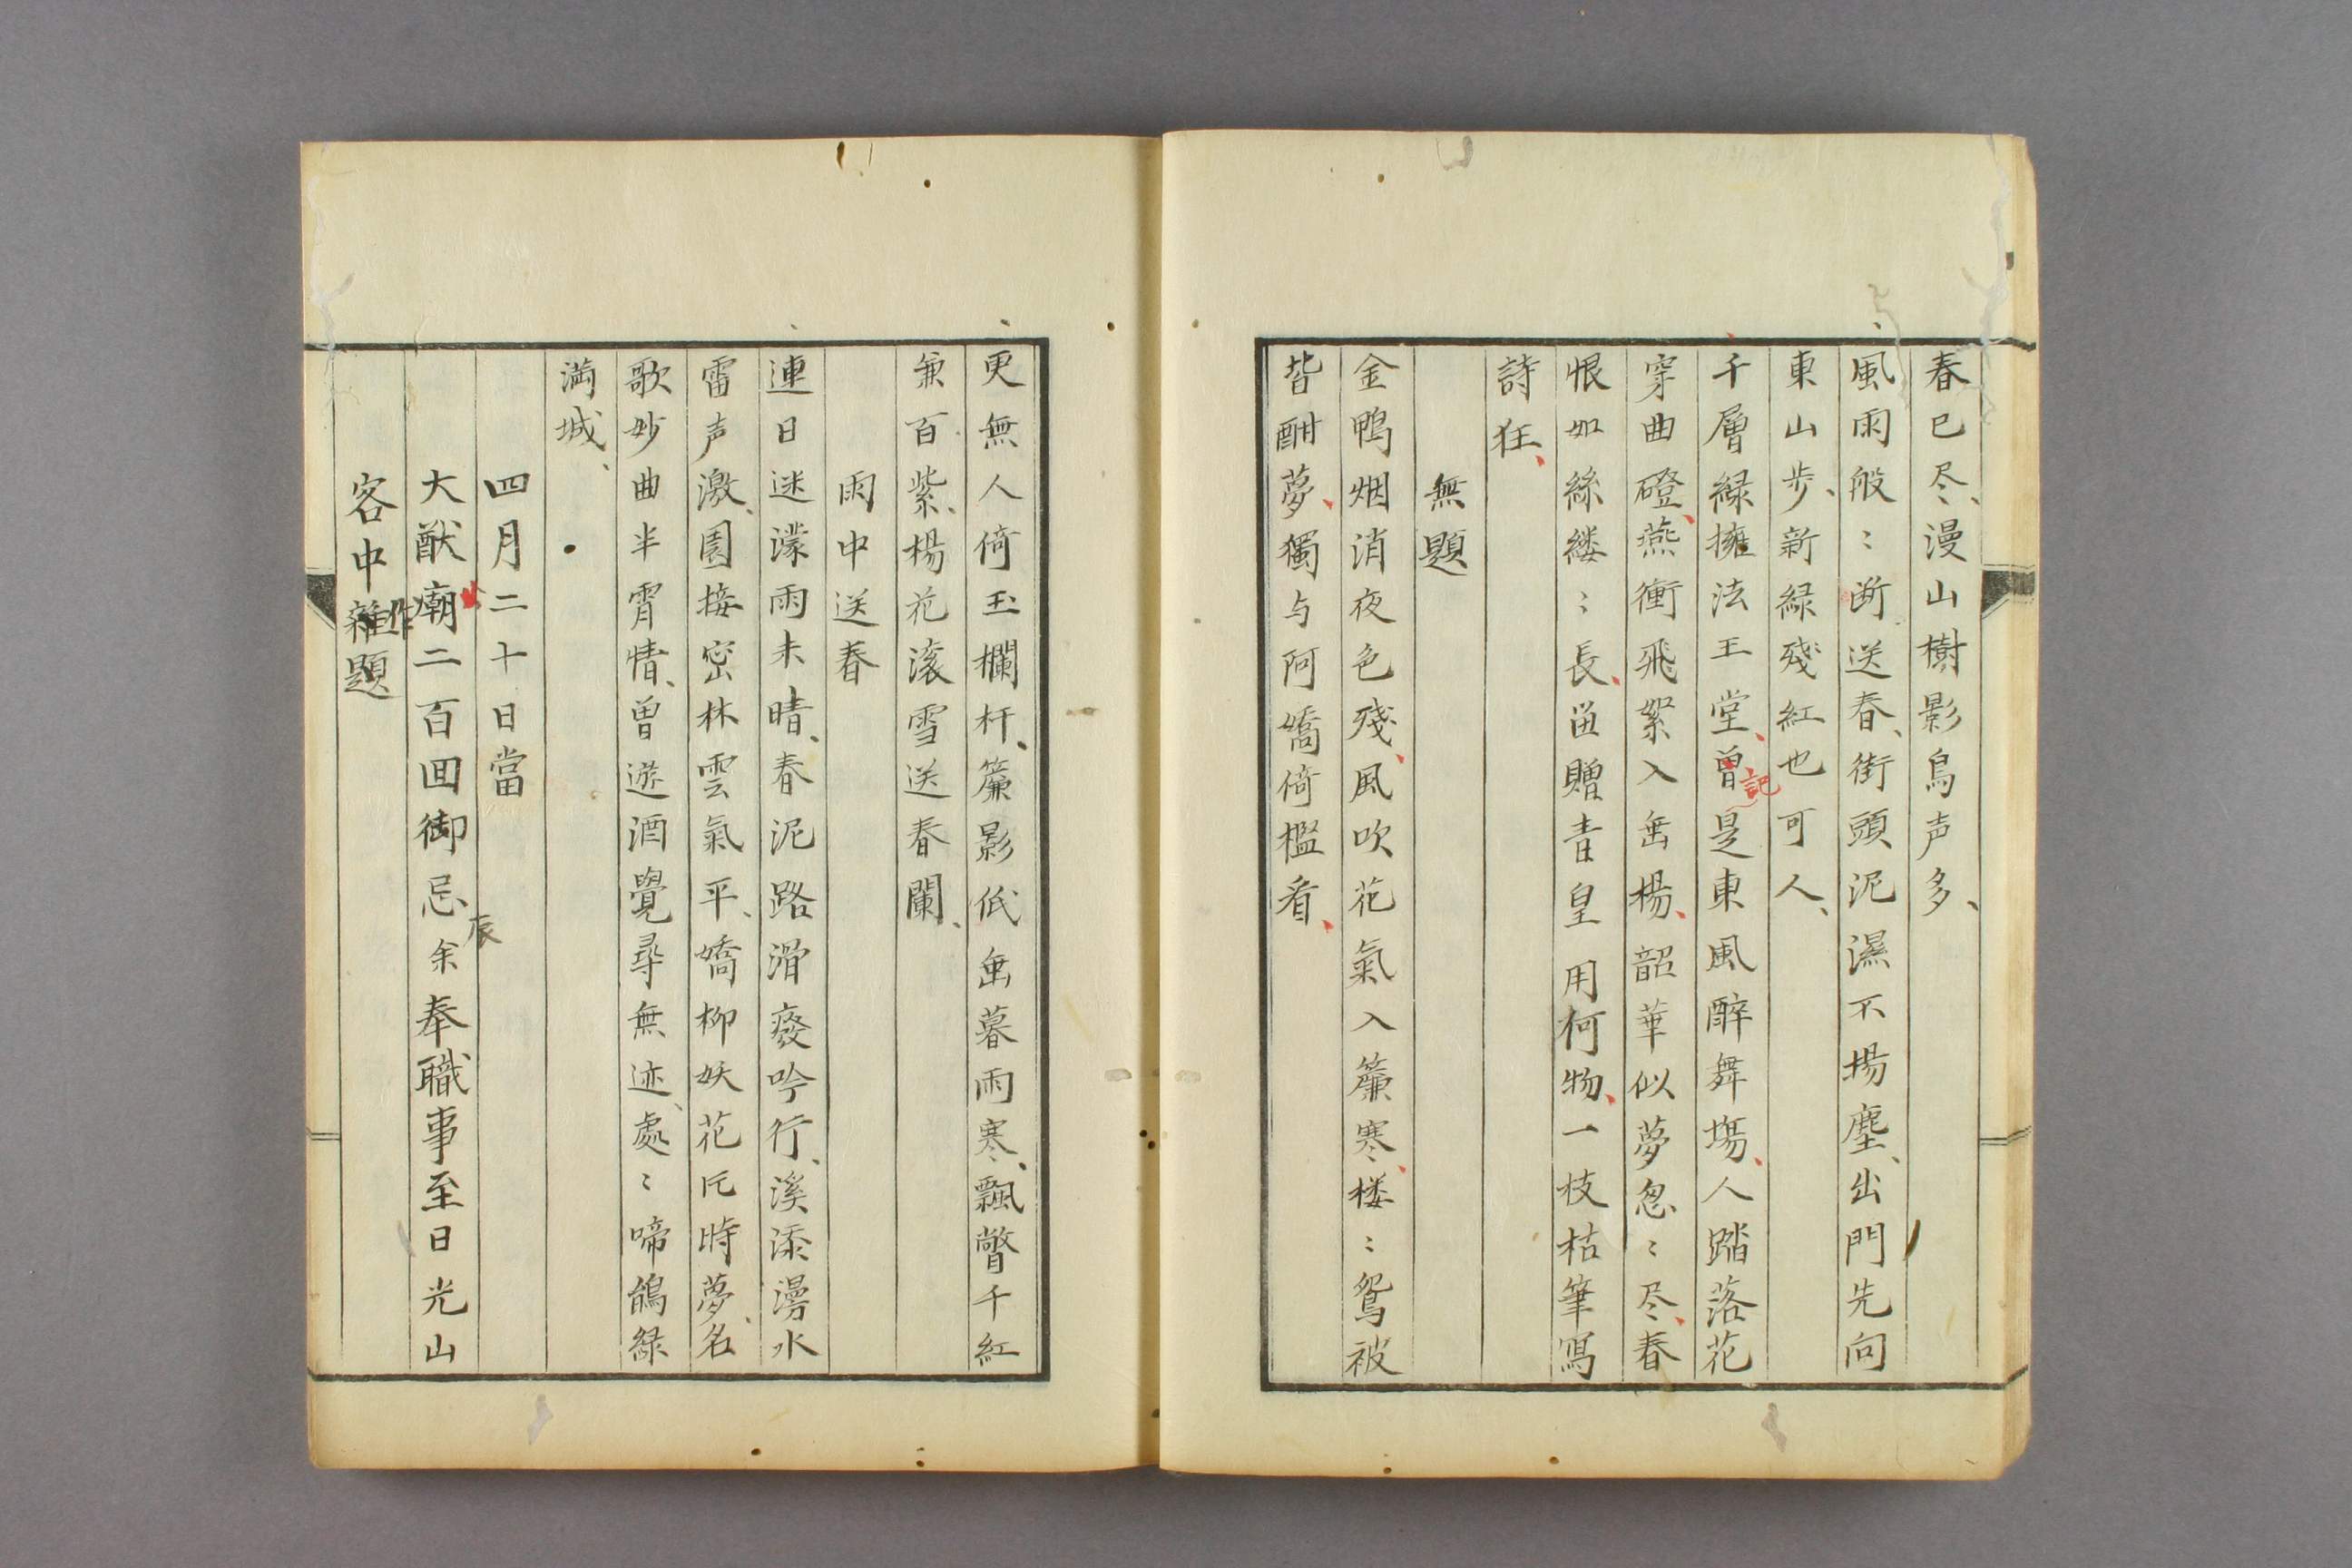 春已尽、漫山樹影鳥声多、
風雨般〻断送春、街頭泥濕不揚塵、出門先向
東山歩、新緑殘紅也可人、
千層緑擁法王堂、曽是東風醉舞塲、人踏落花
記
穿曲磴、燕衝飛絮入垂楊、韶華似夢忽〻尽、春
恨如絲縷〻長、留贈青皇用何物、一枝枯筆寫
詩狂、
無題
金鴨烟消夜色殘、風吹花氣入簾寒、楼〻鴛被
皆酣夢、獨与阿嬌倚檻看、
更無人倚玉欄杆、簾影低垂暮雨寒、飄瞥千紅
兼百紫、楊花滚雪送春闌、
雨中送春
連日迷濛雨未晴、春泥路滑癈吟行、溪添漫水
雷声激、園接密林雲氣平、嬌柳妖花片時夢、名
歌妙曲半宵情、曽遊酒覺尋無迹、處〻啼鴿緑
満城、
四月二十日當
大猷廟二百回御忌余奉職事至日光山
辰
客中雜題
作